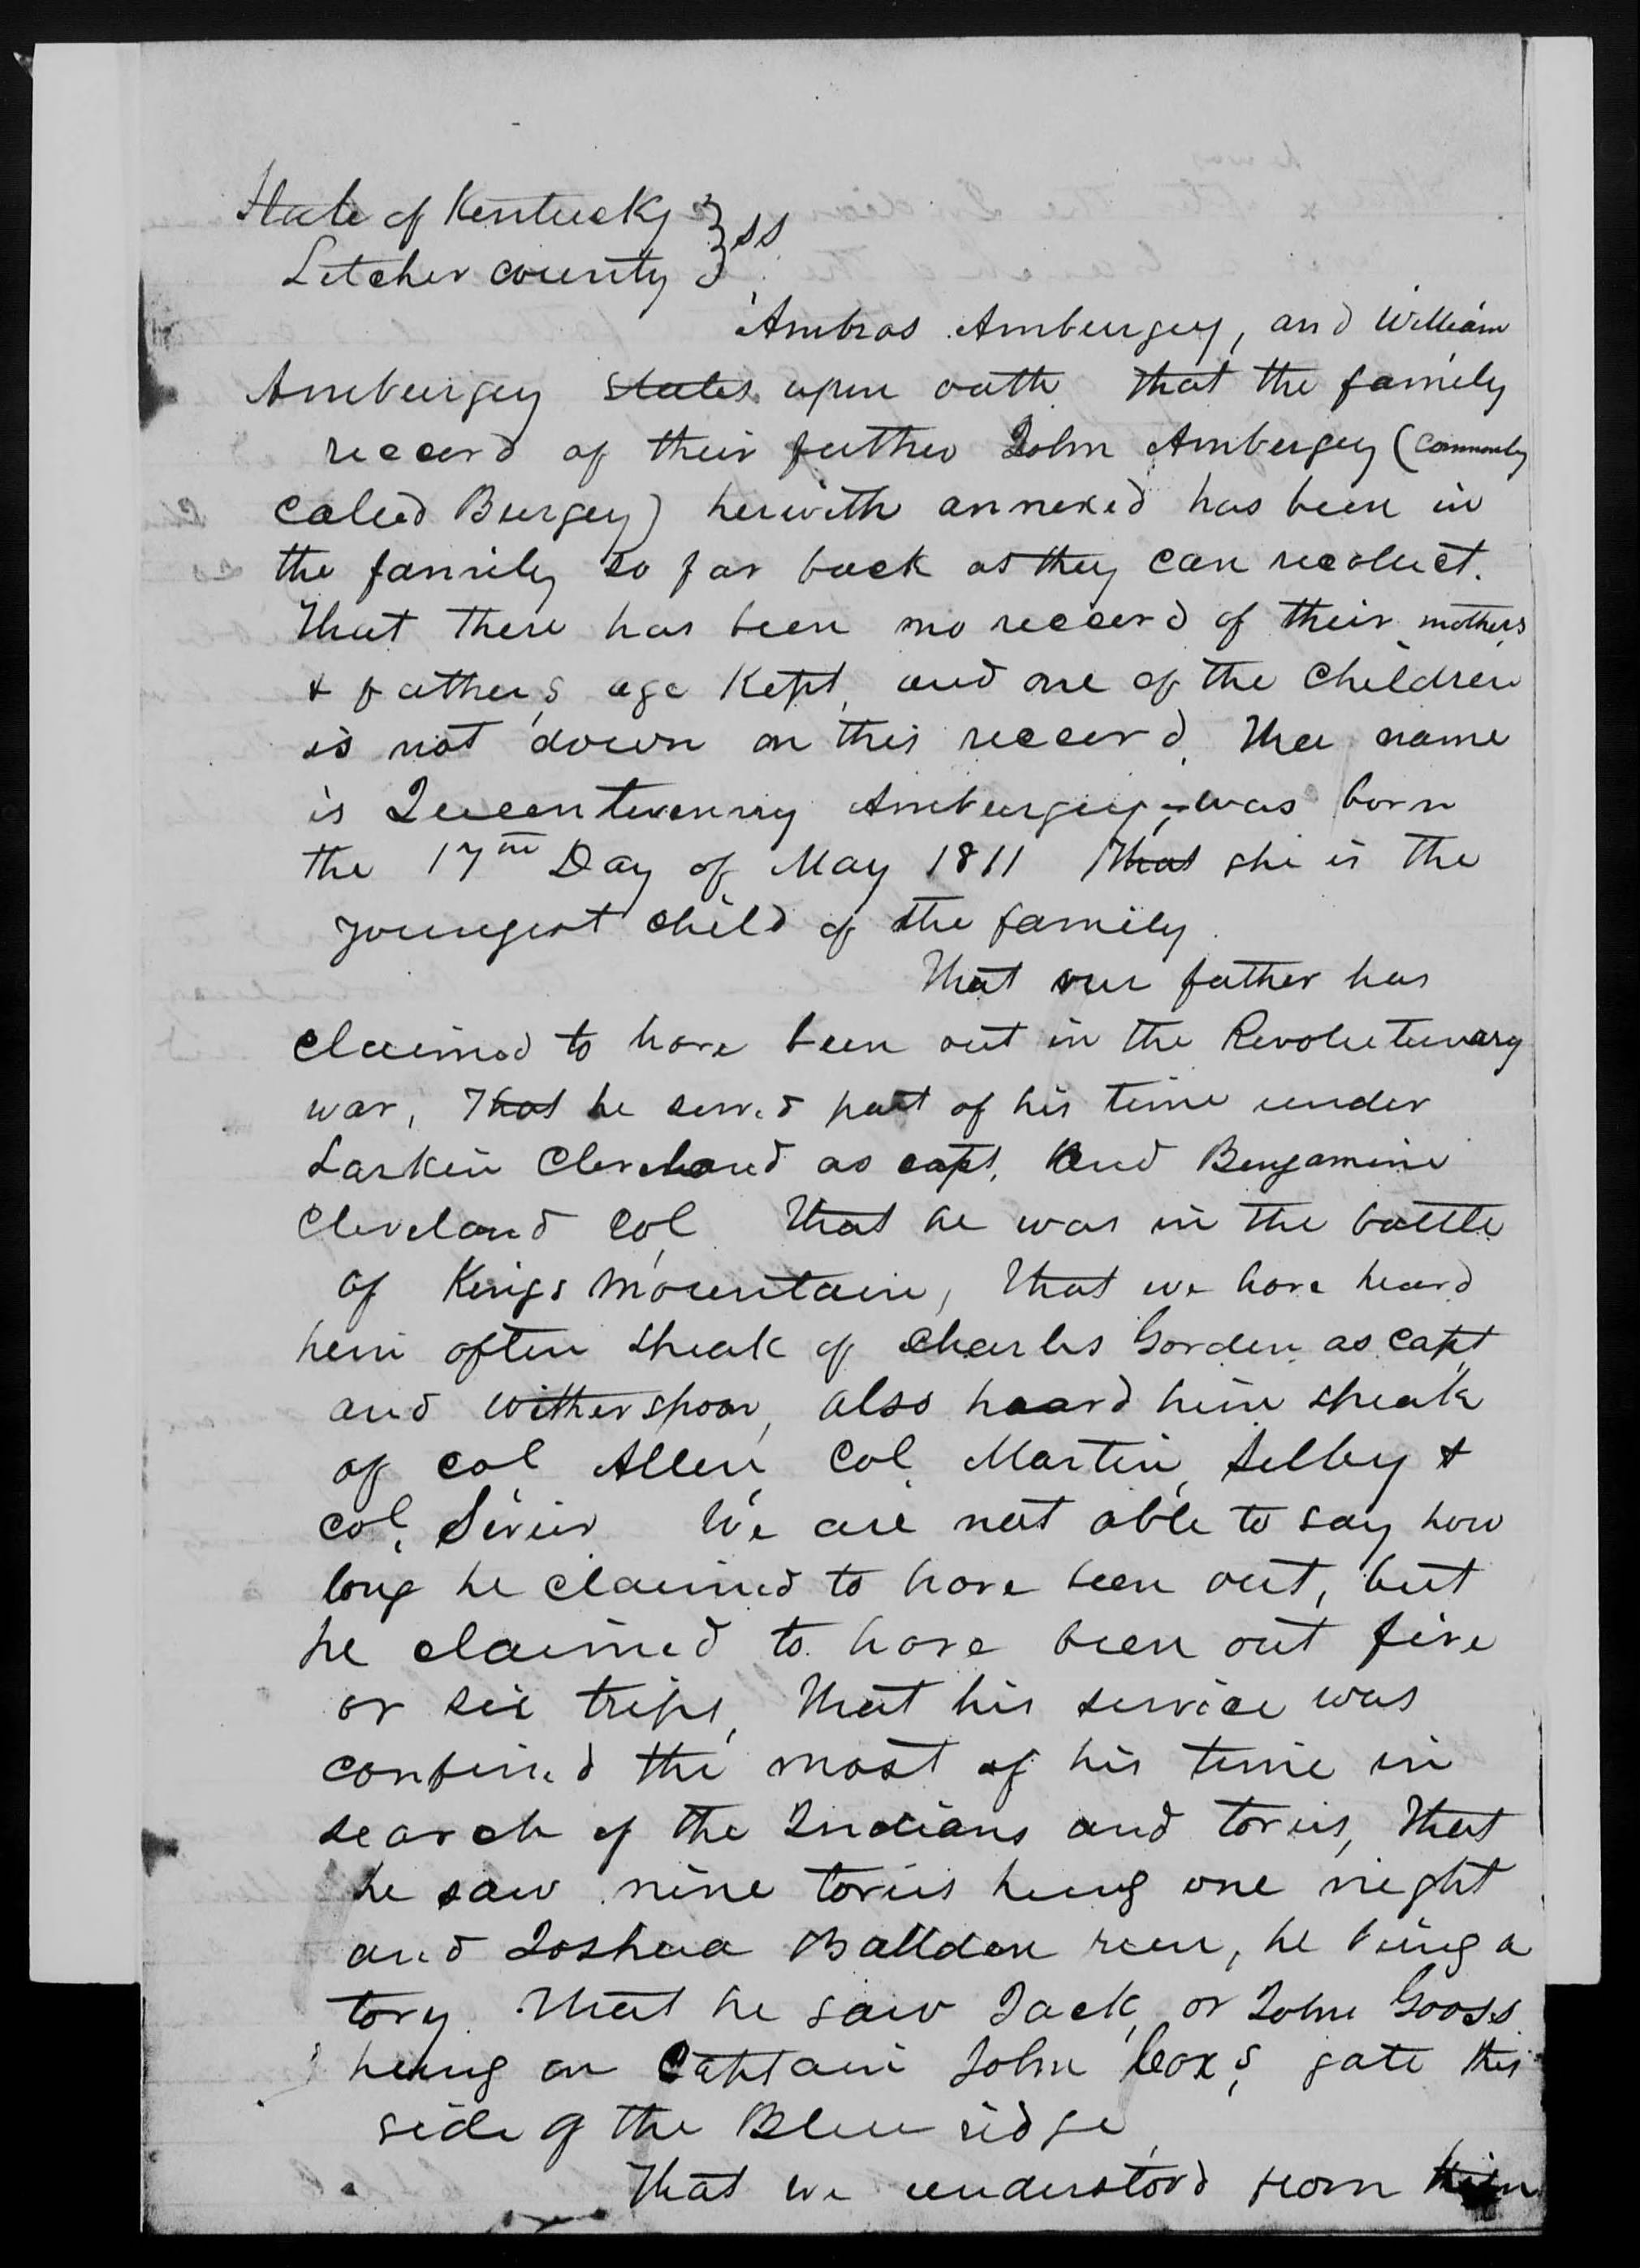 State of Kentucky } ss
Letcher county }
Ambros Amburgey, and William
Amburgey states upon oath that the family
record of their father John Ambergey (commonly
caled Burgey) herwith annexed has been in
the family so far back as they can recolect.
That there has been no record of their mothers
& father,s age Kept, and one of the children
is not down on this record, the name
is Queentivenny Amburgey, was born
the 17th Day of May 1811 That she is the
youngest child of the family.
That our father has
claimed to have been out in the Revolutionary
war, That he served part of his time under
Larkin Cleveland as capt, and Benjamine
Cleveland Col. That he was in the battle
of Kings Mountain, That we have heard
him often speak of Charles Gorden as capt,
and Witherspoon, also heard him speak
of col Allen, Col. Martin, Selby &
col. Sevier We are not able to say how
long he claimed to have been out, but
he claimed to have been out five
or six trips, That his service was
confined the most of his time in
search of the Indians and tories, That
he saw nine tories hung one night
and Joshua Ballden run, he being a
tory. That he saw Jack, or John Gooss
hung on Captain John Cox,s gate this
side of the Blue ridge,
That we understood from him